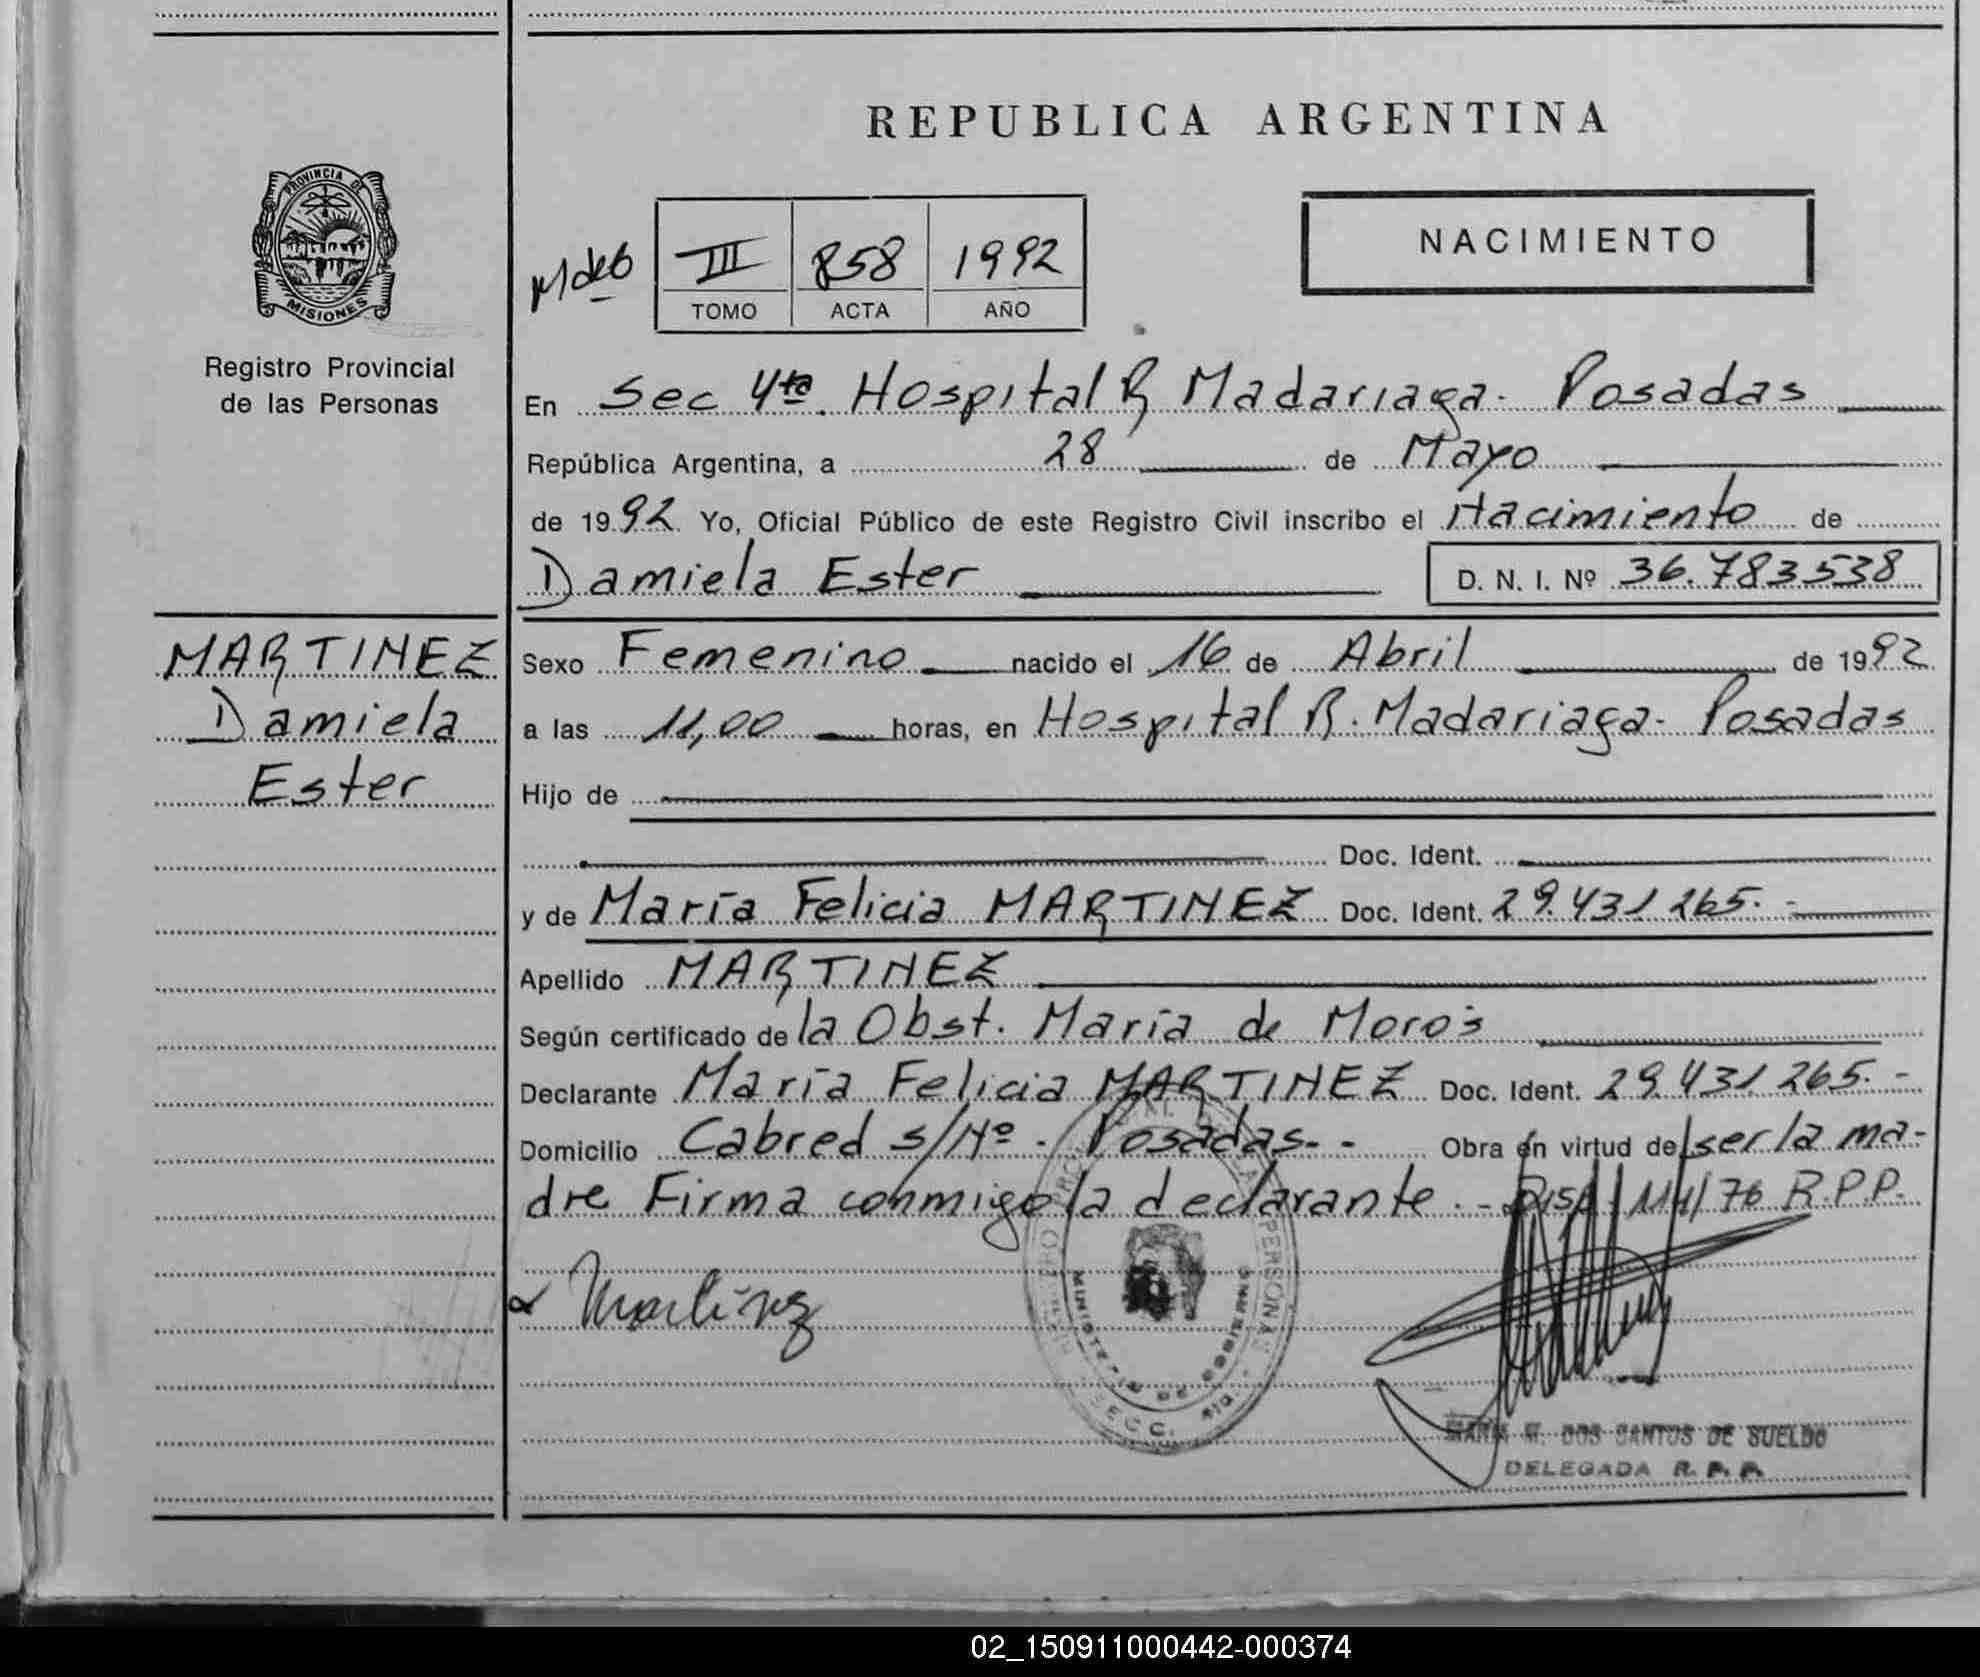 REPUBLICA ARGENTINA
PROVINCIA DE
MISIONES
Registro Provincial
de las Personas
III 858 1992
TOMO ACTA AÑO
NACIMIENTO
En Sec 4ta. Hospital R Madariaga. Posadas
República Argentina, a 28 de Mayo
de 1992 Yo, Oficial Público de este Registro Civil inscribo el Nacimiento de
Daniela Ester D. N. I. Nº 36.783538
MARTINEZ
Daniela
Ester
Sexo Femenino nacido el 16 de Abril de 1992
a las 11,00 horas, en Hospital R. Madariaga- Posadas
Hijo de
Doc. Ident.
y de María Felicia MARTINEZ Doc. Ident. 29.431 265.-
Apellido MARTINEZ
Según certificado de la Obst. María de Moros
Declarante María Felicia MARTINEZ Doc. Ident. 29.431 265.-
Domicilio Cabred s/Nº. Posadas.- - Obra en virtud de ser la ma-
dre Firma conmigo la declarante.- Disp. 111/76 R.P.P.
Martinez
MINISTERIO DE GOBIERNO
MARIA M. DOS SANTOS DE SUELDO
DELEGADA R. P. P.
02_150911000442-000374